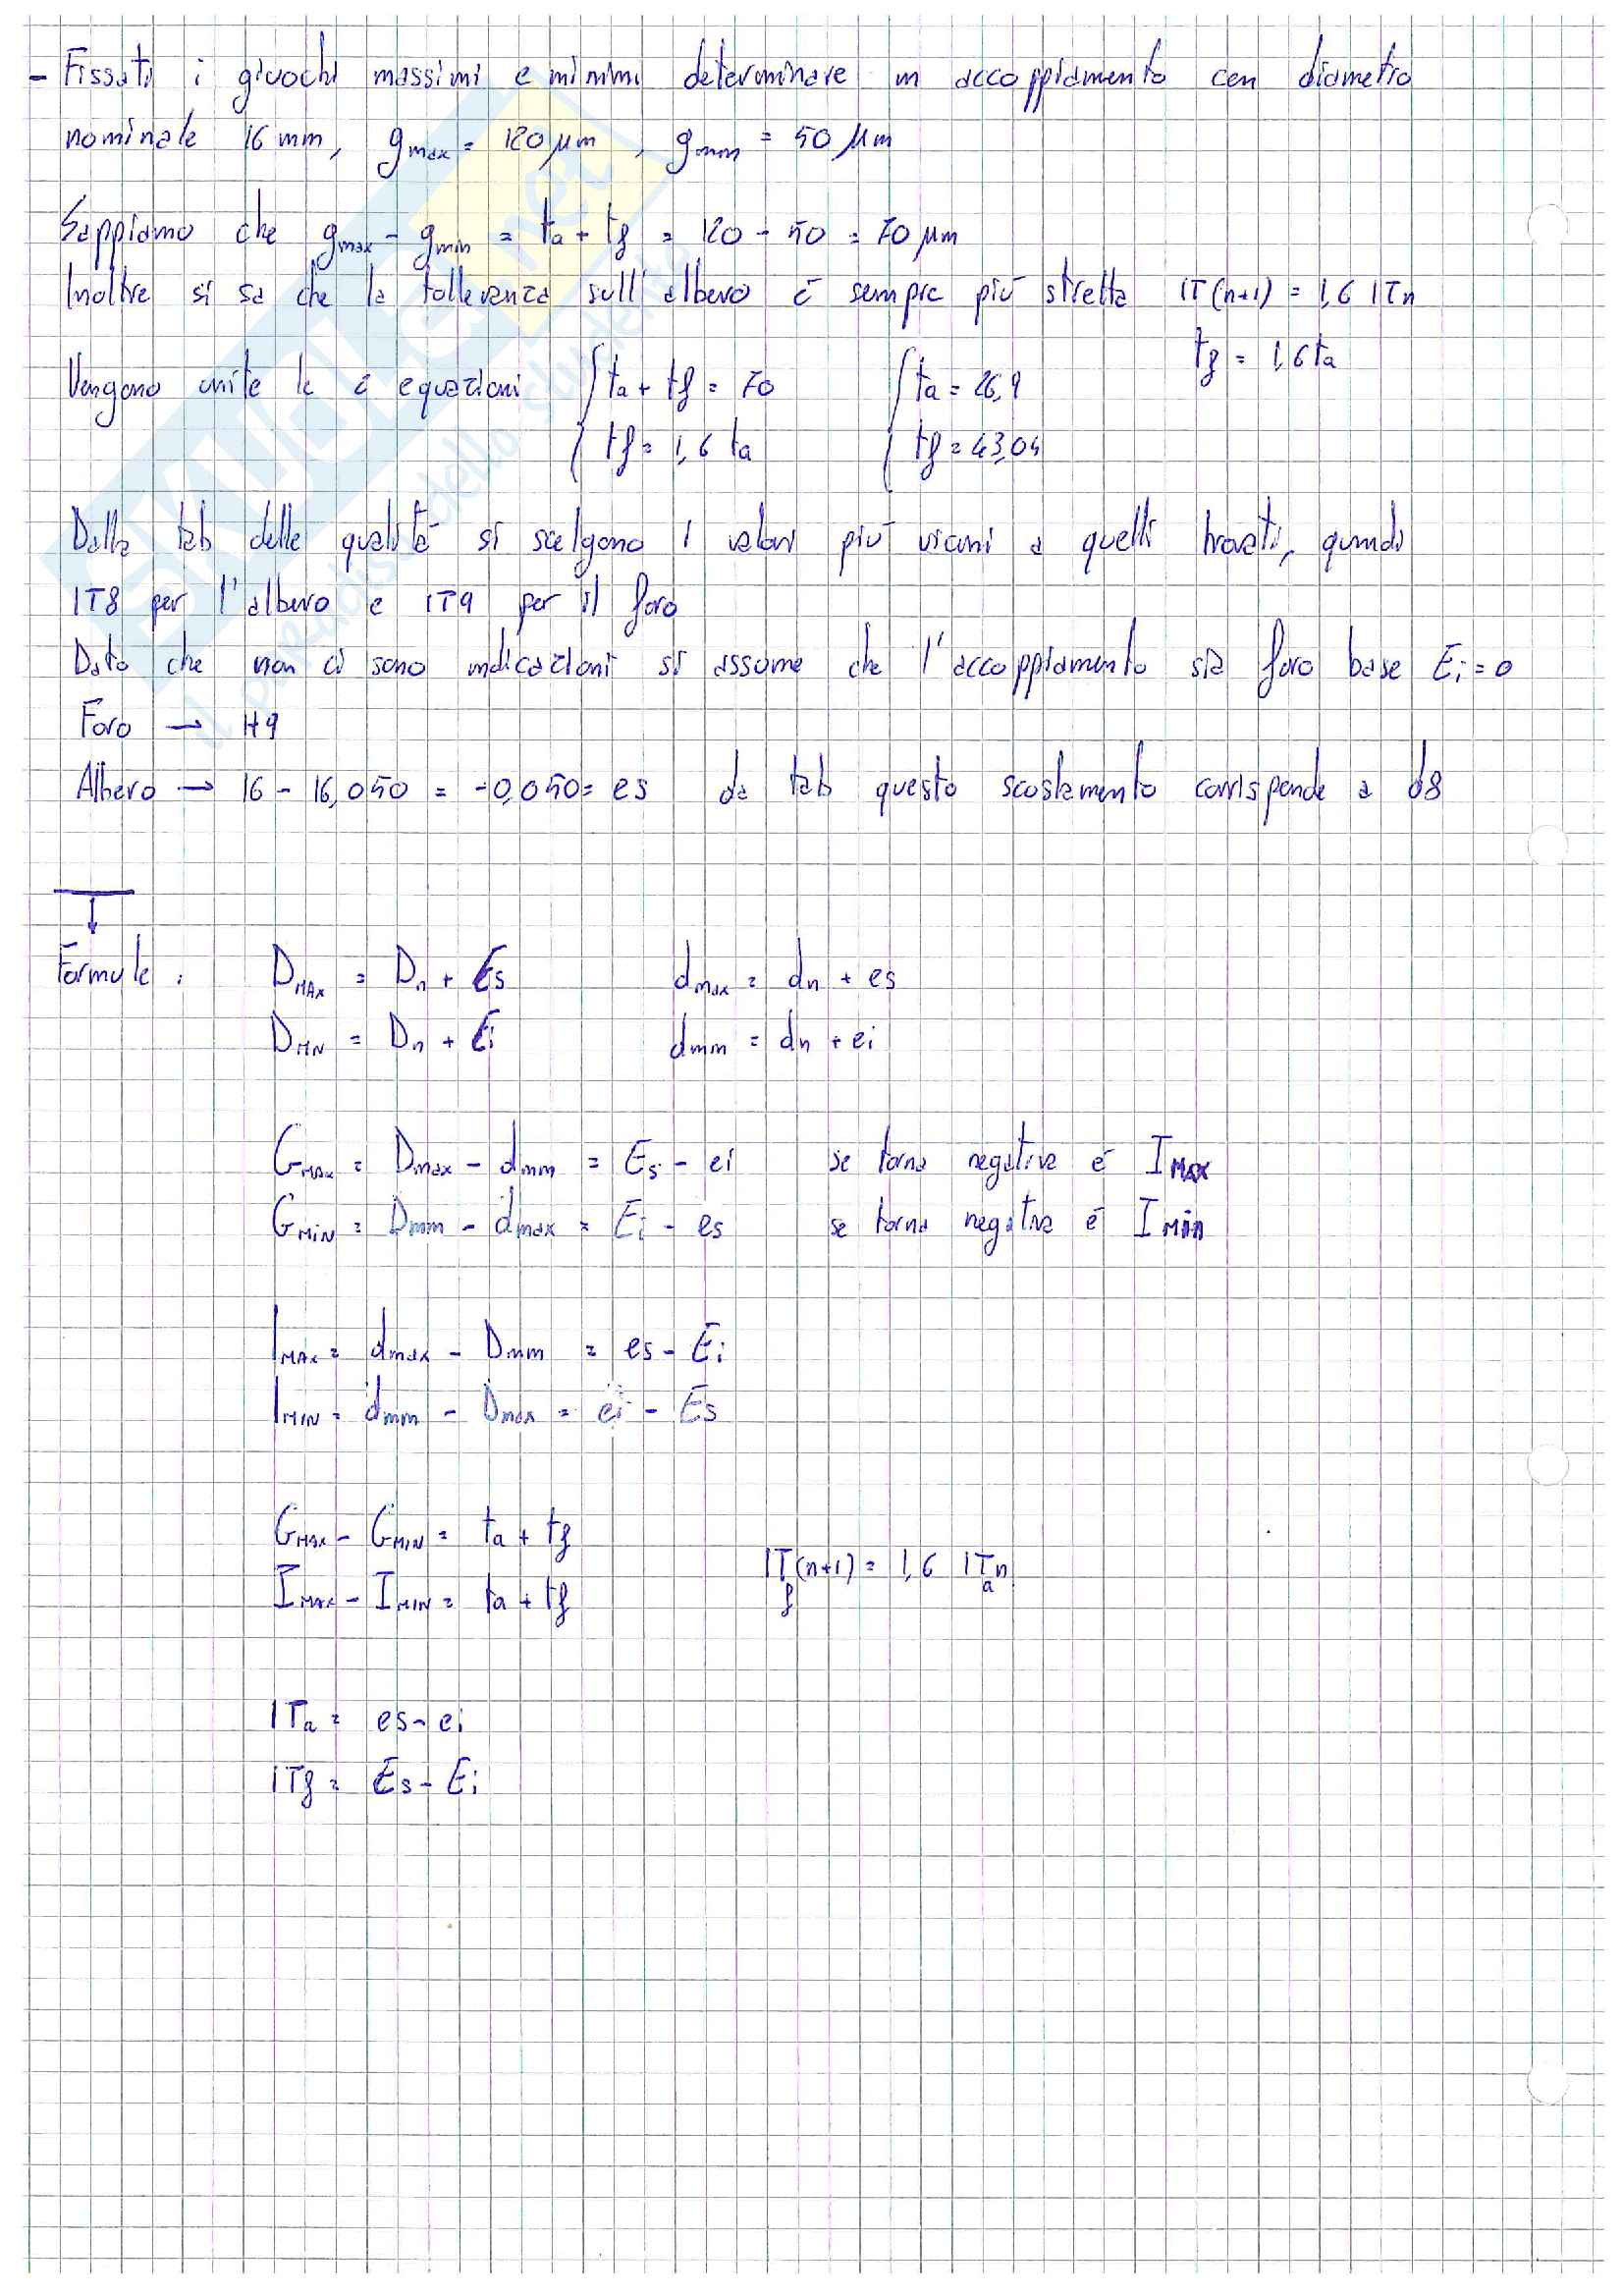 - Fissati i giuochi massimi e minimi determinare un accoppiamento con diametro
nominale 16 mm, gmax = 120 μm, gmin = 50 μm
Sappiamo che gmax - gmin = ta + tf = 120 - 50 = 70 μm
Inoltre si sa che la tolleranza sull'albero è sempre più stretta IT(n+1) = 1,6 ITn
tf = 1,6 ta
Vengono unite le 2 equazioni { ta + tf = 70 { ta = 26,9
{ tf = 1,6 ta { tf = 43,04
Dalla tab delle qualità si scelgono i valori più vicini a quelli trovati, quindi
IT8 per l'albero e IT9 per il foro
Dato che non ci sono indicazioni si assume che l'accoppiamento sia foro base Ei = 0
Foro → H9
Albero → 16 - 16,050 = -0,050 = es da tab questo scostamento corrisponde a d8
Formule: DMAX = Dn + Es dmax = dn + es
DMIN = Dn + Ei dmin = dn + ei
GMAX = Dmax - dmin = Es - ei se torna negativa è IMAX
GMIN = Dmin - dmax = Ei - es se torna negativa è IMin
IMAX = dmax - Dmin = es - Ei
IMIN = dmin - Dmax = ei - Es
GMAX - GMIN = ta + tf
IT(n+1) = 1,6 ITn
f a
IMAX - IMIN = ta + tf
ITa = es - ei
ITf = Es - Ei
SKUOLA.net
il paradiso dello studente